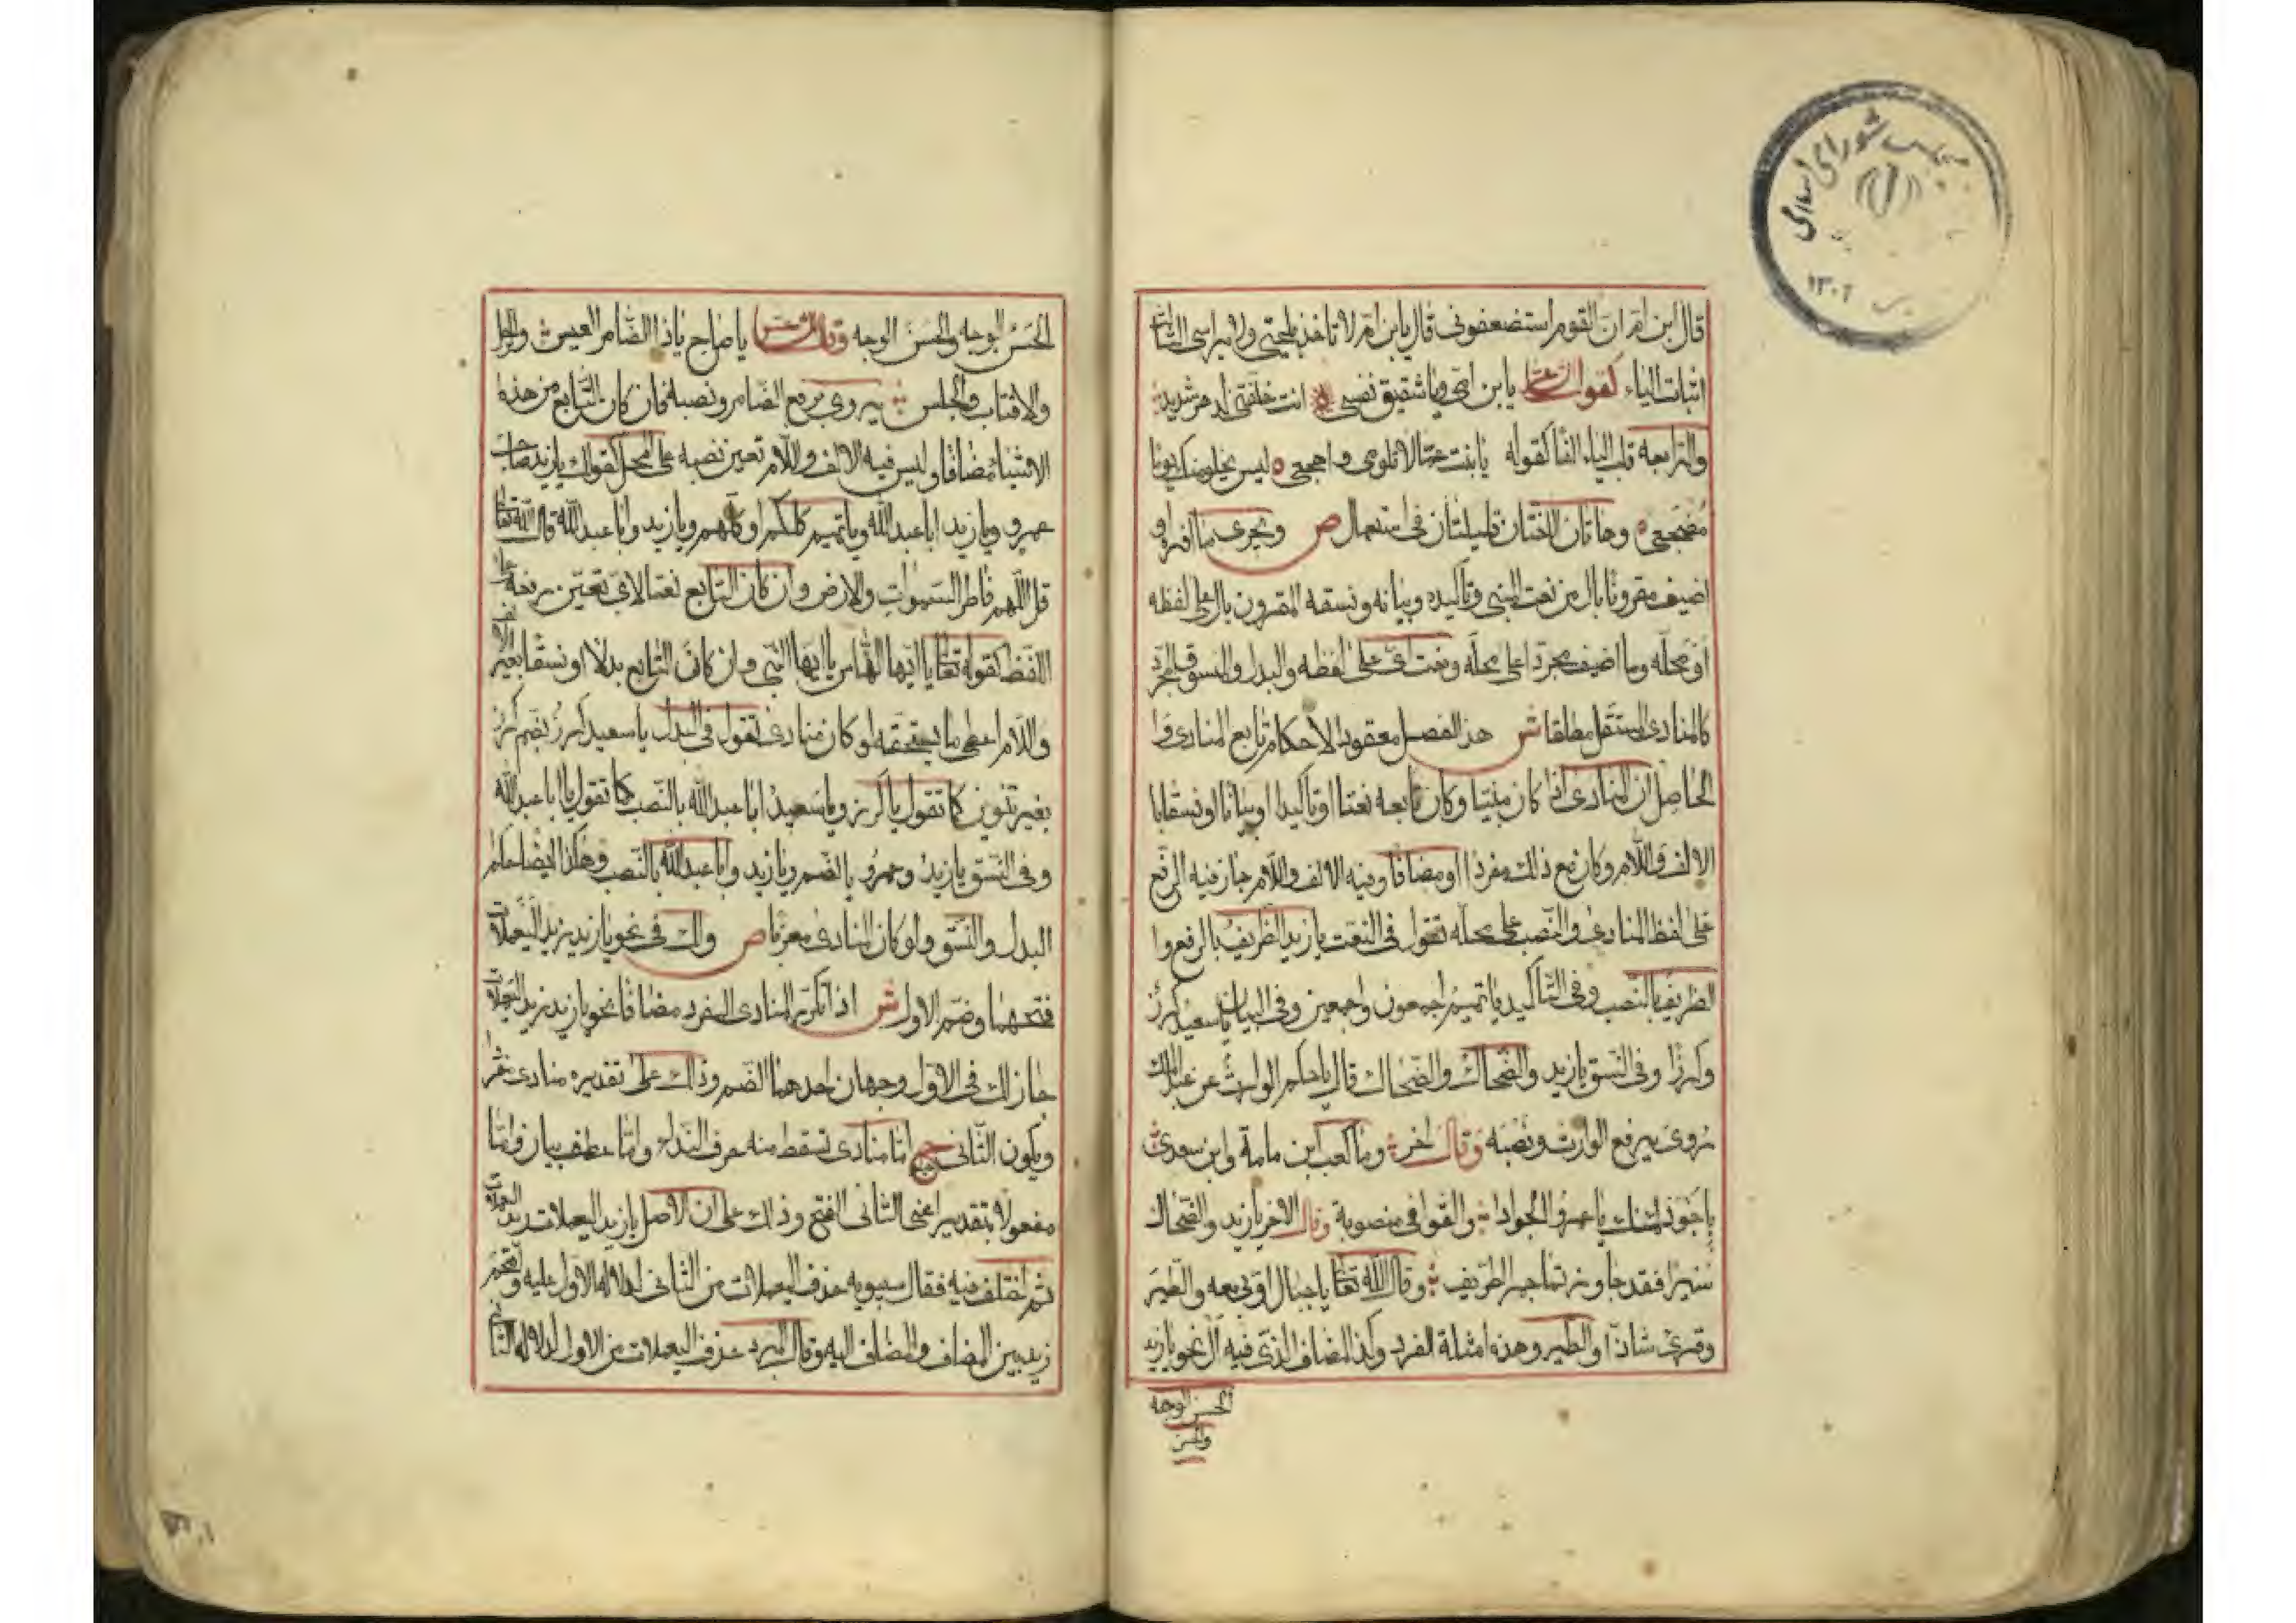 قال ابن ام ان القوم استضعفونى قال يا بن ام لا تاخذ بلحيتى ولا براسى الثالثة
اثبات الياء كقول الشاعر يا بن امى ويا شقيق نفسى انت خلفتنى لدهر شديد
والرابعة قلب الياء الفا كقوله يا بنت عما لا تلومى واهجعى ليس يخلو منك يوما
مضجعى وهاتان اللغتان قليلتان فى استعمال ص ويجرى ما افرد او
اضيف مقرونا بال من نعت المبنى وتاكيده وبيانه ونسقه المقرون بال على لفظه
او محله وما اضيف مجردا على محله ونعت اىّ على لفظه والبدل والنسق المجرد
كالمنادى المستقل مطلقا ش هذا الفصل معقود لاحكام تابع المنادى و
الحاصل ان المنادى اذا كان مبنيا وكان تابعه نعتا او تاكيدا او بيانا او نسقا با
الالف واللام وكان مع ذلك مفردا او مضافا وفيه الالف واللام جاز فيه الرفع
على لفظ المنادى والنصب على محله تقول فى النعت يا زيد الظريف بالرفع وا
الظريف بالنصب وفى التاكيد يا تميم اجمعون واجمعين وفى البيان يا سعيد كرز
وكرزا وفى النسق يا زيد والضحاك والضحاك قال يا حكم الوارث عن عبد الملك
روى برفع الوارث ونصبه وقال اخر وما كعب ابن مامة وابن سعدى
باجود منك يا عمرو الجوادا والقوافى منصوبة وقال الاخر يا زيد والضحاك
سيرا فقد جاوزتما خمر الطريف وقال الله تعالى يا جبال اوبى معه والطير
وقرئ شاذا والطير وهذه امثلة المفرد وكذا المضاف الذى فيه ال نحو يا زيد
الحسن الوجه
والحسن
الحسن الوجه والحسن الوجه وقال الشاعر يا صاح يا ذا الضامر العيس والرحل
والاقتاب والحلس يروى برفع الضامر ونصبه فان كان التابع من هذه
الاشياء مضافا وليس فيه الالف واللام تعين نصبه على المحل كقولك يا زيد صاحب
عمرو ويا زيد ابا عبد الله ويا تميم كلكم او كلهم ويا زيد وابا عبد الله قال الله تعالى
قل اللهم فاطر السموات والارض وان كان التابع نعتا لاىّ تعين رفعه على
اللفظ كقوله تعالى يا ايها الناس يا ايها النبى وان كان التابع بدلا او نسقا بغير الالف
واللام اعطى ما يستحقه لو كان منادى تقول فى البدل يا سعيد كرز بضم كرز
بغير تنوين كما تقول يا كرز ويا سعيد ابا عبد الله بالنصب كما تقول يا ابا عبد الله
وفى النسق يا زيد وعمرو بالضم ويا زيد وابا عبد الله بالنصب وهكذا ايضا حكم
البدل والنسق ولو كان المنادى معربا ص ولك فى نحو يا زيد زيد اليعملات
فتحهما وضم الاول ش اذا تكرر المنادى المفرد مضافا نحو يا زيد زيد اليعملات
جاز لك فى الاول وجهان احدهما الضم وذلك على تقديره منادى مفردا
ويكون الثانى ح اما منادى تسقط منه حرف النداء واما عطف بيان واما
مفعولا بتقدير اعنى الثانى الفتح وذلك على ان الاصل يا زيد اليعملات زيد اليعملات
ثم اختلف فيه فقال سيبويه حذف اليعملات من الثانى لدلالة الاول عليه واقحم
زيد بين المضاف والمضاف اليه وقال المبرد حذف اليعملات من الاول لدلالة الثانى
مجلس شوراى اسلامى
١٣٠٢